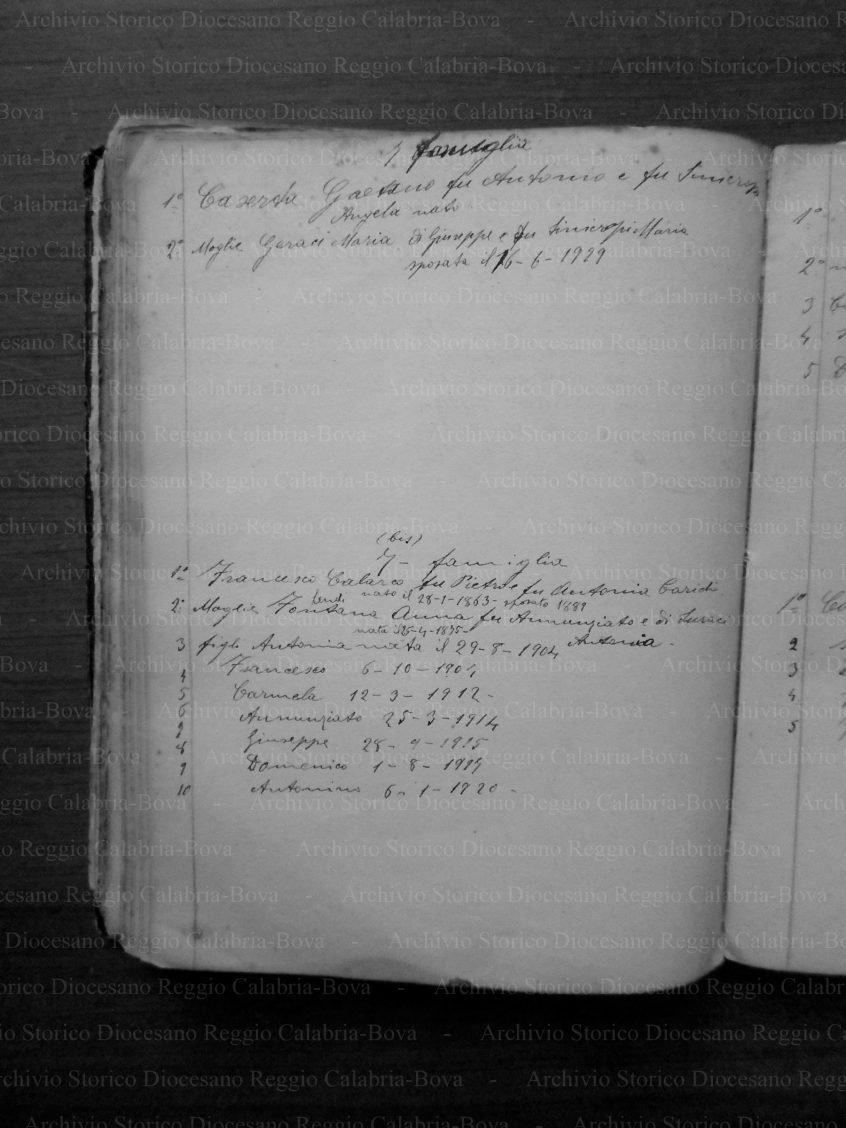 7 famiglia
1º Caserta Gaetano fu Antonio e fu
Angela nato
2º Moglie Geraci Maria di Giuseppe e fu Maria
sposata il 16-6-1929
(bis)
7- famiglia
1º Francesco Calarco fu Pietro e fu Antonia Caridi
nato il 28-1-1863- sposato 1889
2º Moglie Fontana Anna fu Annunziato e di Suraci
Antonia -
3 figli Antonia nata il 29-8-1904
4 Francesco 6-10-1904
5 Carmela 12-3-1912-
6 Annunziato 25-3-1914
7
8 Giuseppe 28-9-1915
9 Domenico 1-8-1919
10 Antonino 6-1-1920-
1º
2º
3
4
5
1º
2
3
4
5
Archivio Storico Diocesano Reggio Calabria-Bova